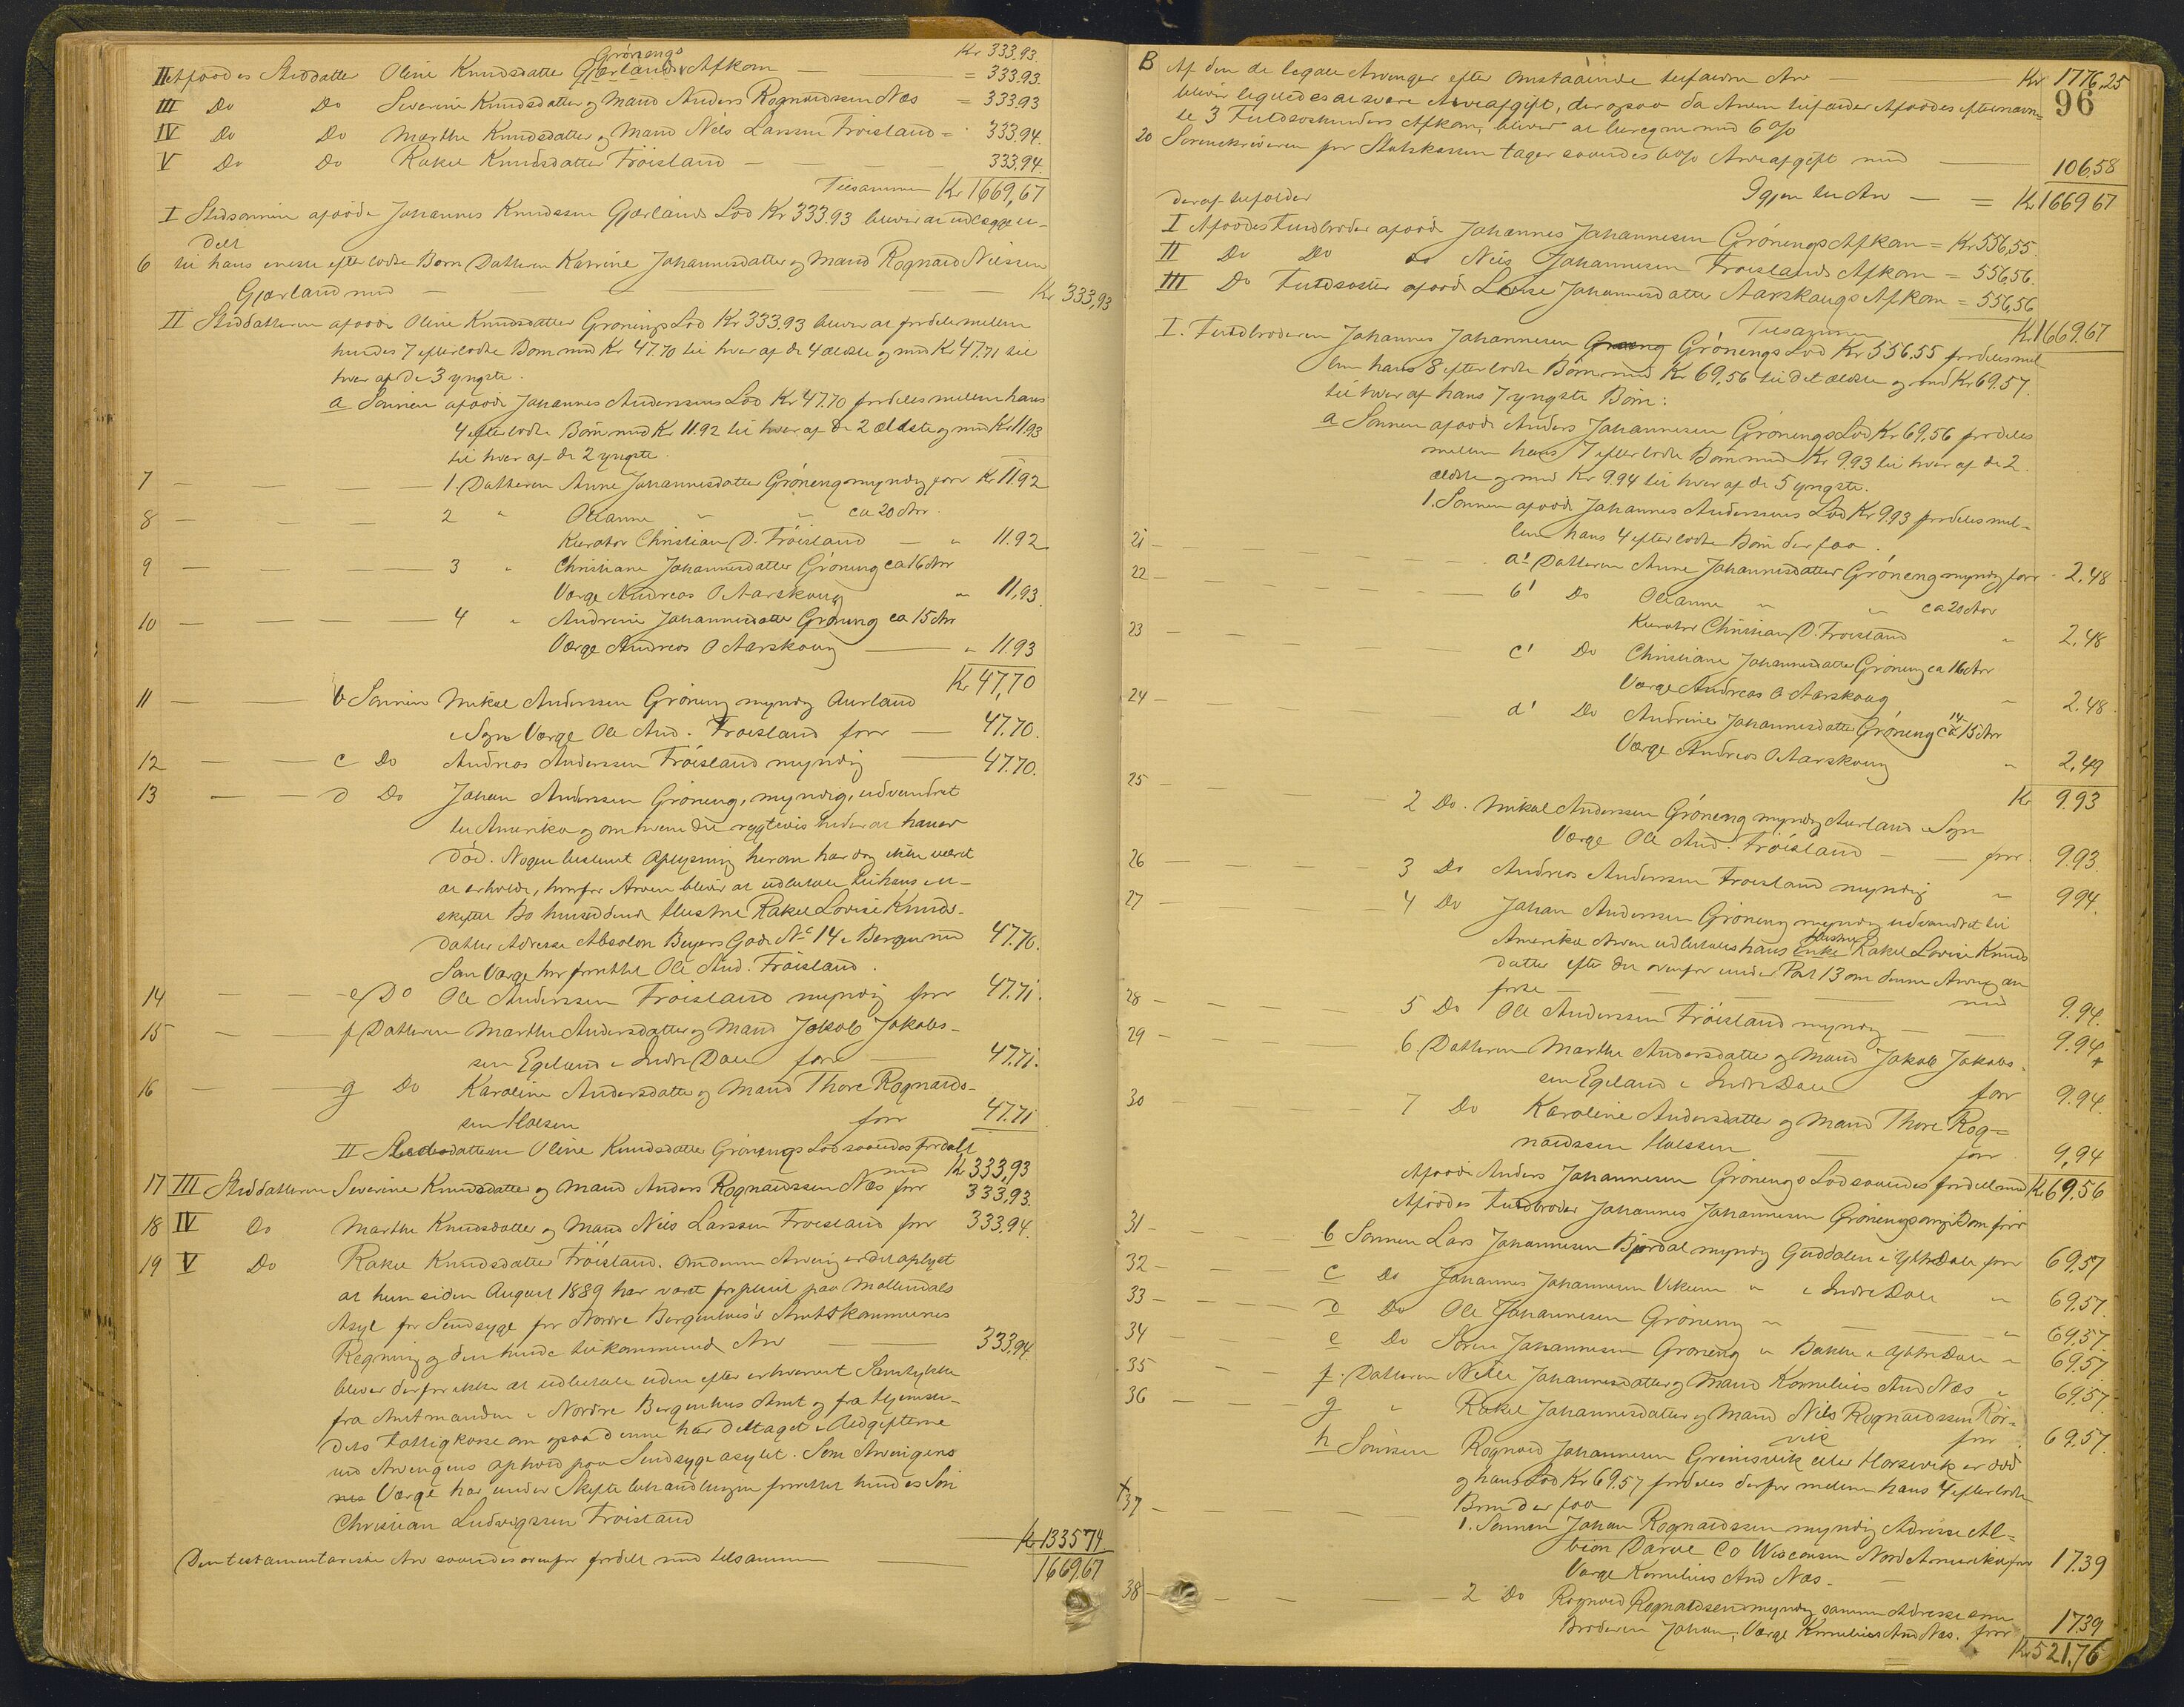 Kr 333.93.
Grönengs
II Afdödes Steddatter Oline Knudsdatter Gjærlands Afkom — = 333.93.
III Do Do Severine Knudsdatter og Mand Anders Rognaldssen Næs = 333.93
IV Do Do Marthe Knudsdatter og Mand Nils Larssen Fröisland = 333.94.
V Do Do Rakel Knudsdatter Fröisland — 333.94.
Tilsammen Kr 1669,67
I Stedsönnen afdöde Johannes Knudssen Gjærlands Lod Kr 333.93 bliver at udlægge u-
delt
6 til hans eneste efterladte Barn Datteren Karrine Johannesdatter og Mand Rognald Nilssen
Gjærland med — Kr 333,93
II Steddatteren afdöde Oline Knudsdatter Grönengs Lod Kr 333.93 bliver at fordele mellem
hendes 7 efterladte Börn med Kr 47.70 til hver af de 4 ældste og med Kr 47.71 til
hver af de 3 yngste.
a Sönnen afdöde Johannes Anderssens Lod Kr 47.70 fordeles mellem hans
4 efterladte Börn med Kr 11.92 til hver af de 2 ældste og med Kr 11.93
til hver af de 2 yngste.
7 — 1. Datteren Anne Johannesdatter Gröneng myndig for Kr 11.92
8 — 2 " Oleanne " " ca 20 Aar.
Kurator Christian D. Fröisland — " 11.92
9 — 3 " Christiane Johannesdatter Gröneng ca 16 Aar
Værge Andreas O Aarskoug " 11,93.
10 — 4 " Andrine Johannesdatter Gröneng ca 15 Aar
Værge Andreas O Aarskoug — " 11.93
Kr 47,70
11 — b Sönnen Mikal Anderssen Gröneng myndig Aurland
Sogn Værge Ole And. Fröisland for — 47.70.
12 — c Do Andreas Anderssen Fröisland myndig — 47.70.
13 — d Do Johan Anderssen Gröneng, myndig, udvandret
til Amerika og om hvem det rygtevis heder at han er
död. Nogen bestemt Oplysning herom har dog ikke været
at erholde, hvorfor Arven bliver at udbetale til hans u-
skiftede Bo hensiddende Hustru Rakel Lovise Knuds-
datter Adresse Absolon Beyers Gade No 14 i Bergen med 47.70.
Som Værge har forrettet Ole And. Fröisland.
14 — e Do Ole Anderssen Fröisland myndig for 47.71.
15 — f Datteren Marthe Andersdatter og Mand Jakob Jakobs-
sen Egeland i Indre Dale for — 47.71.
16 — g Do Karoline Andersdatter og Mand Thore Rognalds-
sen Holsen for 47.71
II Steddatteren Oline Knudsdatter Grönengs Lod saaledes fordelt
med Kr 333,93
17 III Steddatteren Severine Knudsdatter og Mand Anders Rognaldssen Næs for 333.93.
18 IV Do Marthe Knudsdatter og Mand Nils Larssen Fröisland for 333.94.
19 V Do Rakel Knudsdatter Fröisland. Om denne Arving er det oplyst
at hun siden August 1889 har været forpleiet paa Möllendals
Asyl for Sindsyge for Nordre Bergenhus's Amtskommunes
Regning og den hende tilkommende Arv — 333,94.
bliver derfor ikke at udbetale uden efter erhvervet Samtykke
fra Amtmanden i Nordre Bergenhus Amt og fra Hjemste-
dets Fattigkasse om ogsaa denne har deltaget i Udgifterne
ved Arvingens Ophold paa Sindsygeasylet. Som Arvingens
Værge har under Skiftebehandlingen forrettet hendes Sön
Christian Ludvigssen Fröisland
Kr 1335.74
Den testamentariske Arv saaledes ovenfor fordelt med tilsammen — 1669.67
B Af den de legale Arvinger efter Omstaaende tilfaldne Arv — Kr 1776,25
96
bliver ligeledes at svare Arveafgift, der ogsaa da Arven tilfalder Afdödes efternævn-
te 3 Fuldsöskendes Afkom, bliver at beregne med 6 o/o
20 Sorenskriveren for Statskassen tager saaledes 6 o/o Arveafgift med — 106,58
Igjen til Arv — = Kr 1669 67
Deraf tilfalder
I Afdödes Fuldbroder afdöde Johannes Johannesen Grönengs Afkom = Kr. 556,55.
II Do Do do Nils Johannesen Fröislands Afkom = 556,56.
III Do Fuldsöster afdöde Lovise Johannesdatter Aarskougs Afkom = 556,56
Tilsammen Kr. 1669.67
I. Fuldbroderen Johannes Johannesen Grönengs Lod Kr 556.55 fordeles mel-
lem hans 8 efterladte Börn med Kr 69,56 til det ældste og med Kr 69.57.
til hver af hans 7 yngste Börn:
a Sönnen afdöde Anders Johannesen Grönengs Lod Kr 69,56 fordeles
mellem hans 7 efterladte Börn med Kr 9.93 til hver af de 2
ældste og med Kr 9.94 til hver af de 5 yngste.
1. Sönnen afdöde Johannes Anderssens Lod Kr 9.93 fordeles mel-
lem hans 4 efterladte Börn der faar.
21 — a' Datteren Anne Johannesdatter Gröneng myndig for - 2,48
22 — b' Do Oleanne " " ca 20 Aar
Kurator Christian D. Fröisland " 2,48
23 — c' Do Christiane Johannesdatter Gröneng ca 16 Aar
Værge Andreas O Aarskoug " 2.48
24 — d' Do Andrine Johannesdatter Gröneng ca 15 Aar
14
Værge Andreas O Aarskoug " 2,49
Kr 9.93
25 — 2 Do. Mikal Anderssen Gröneng myndig Aurland Sogn
Værge Ole And. Fröisland — for 9.93.
26 — 3 Do Andreas Anderssen Fröisland myndig " 994.
27 — 4 Do Johan Anderssen Gröneng myndig udvandret til
Amerika Arven udbetales hans Enke Rakel Lovise Knuds
Hustru
datter efter det ovenfor under Post 13 om denne Arving an
förte — med 9.94.
28 — 5 Do Ole Anderssen Fröisland myndig — 9.94
29 — 6. Datteren Marthe Andersdatter og Mand Jakob Jakobs-
sen Egeland i Indre Dale for 9.94.
30 — 7 Do Karoline Andersdatter og Mand Thore Rog=
naldssen Holssen — for 9,94
Afdöde Anders Johannesen Grönengs Lod saaledes fordelt med Kr 69,56
Afdödes Fuldbroder Johannes Johannesen Grönengs
31 — b Sönnen Lars Johannesen Bjordal myndig Guddalen i Ytre Dale for 69,57
32 — c Do Johannes Johannesen Vikum " i Indre Dale " 69.57.
33 — d Do Ole Johannesen Gröneng " — " 69,57.
34 — e Do Sören Johannesen Gröneng " Bakke i Ytre Dale " 69.57.
35 — f. Datteren Nille Johannesdatter og Mand Kornelius And Næs " 69,57.
36 — g " Rakel Johannesdatter og Mand Nils Rognaldssen Rör-
vik for 69.57.
h Sönnen Rognald Johannesen Grimsvik eller Horsevik er död
og hans Lod Kr 69.57 fordeles derfor mellem hans 4 efterladte
Börn der faar
37 — 1. Sönnen Johan Rognaldssen myndig Adresse Al=
bion Darve Co Wisconsin Nord Amerika for 17.39
Værge Kornelius And Næs. —
38 — 2 Do Rognald Rognaldsen myndig samme Adresse som
Broderen Johan, Værge Kornelius And Næs. for 17.39
Kr 521.76